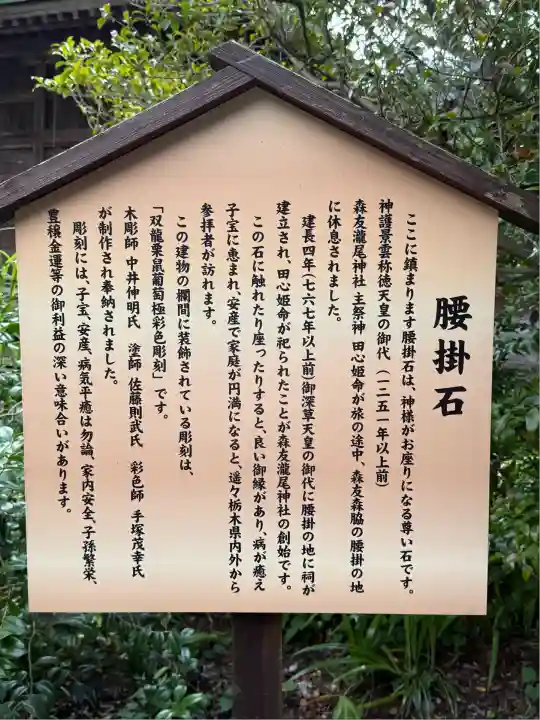 腰掛石
ここに鎮まります腰掛石は、神様がお座りになる尊い石です。
神護景雲称徳天皇の御代（一二五一年以上前）
森友瀧尾神社 主祭神 田心姫命が旅の途中、森友森脇の腰掛の地
に休息されました。
建長四年（七六七年以上前）御深草天皇の御代に腰掛の地に祠が
建立され、田心姫命が祀られたことが森友瀧尾神社の創始です。
この石に触れたり座ったりすると、良い御縁があり、病が癒え
子宝に恵まれ、安産で家庭が円満になると、遥々栃木県内外から
参拝者が訪れます。
この建物の欄間に装飾されている彫刻は、
「双龍栗鼠葡萄極彩色彫刻」です。
木彫師 中井伸明氏 塗師 佐藤則武氏 彩色師 手塚茂幸氏
が制作され奉納されました。
彫刻には、子宝、安産、病気平癒は勿論、家内安全、子孫繁栄、
豊穣金運等の御利益の深い意味合いがあります。